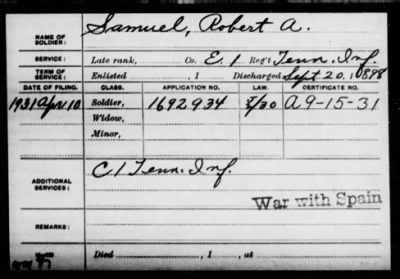 NAME OF SOLDIER: Samuel, Robert A.
SERVICE: Late rank, Co. E. 1 Reg't Tenn. Inf.
TERM OF SERVICE: Enlisted , 1 Discharged Sept 20. 1898
DATE OF FILING. CLASS. APPLICATION NO. LAW. CERTIFICATE NO.
1931 Apr 10 Soldier, 1692934 A 9-15-31
Widow,
Minor,
ADDITIONAL SERVICES: C 1 Tenn. Inf.
War with Spain
REMARKS:
Died , 1 , at